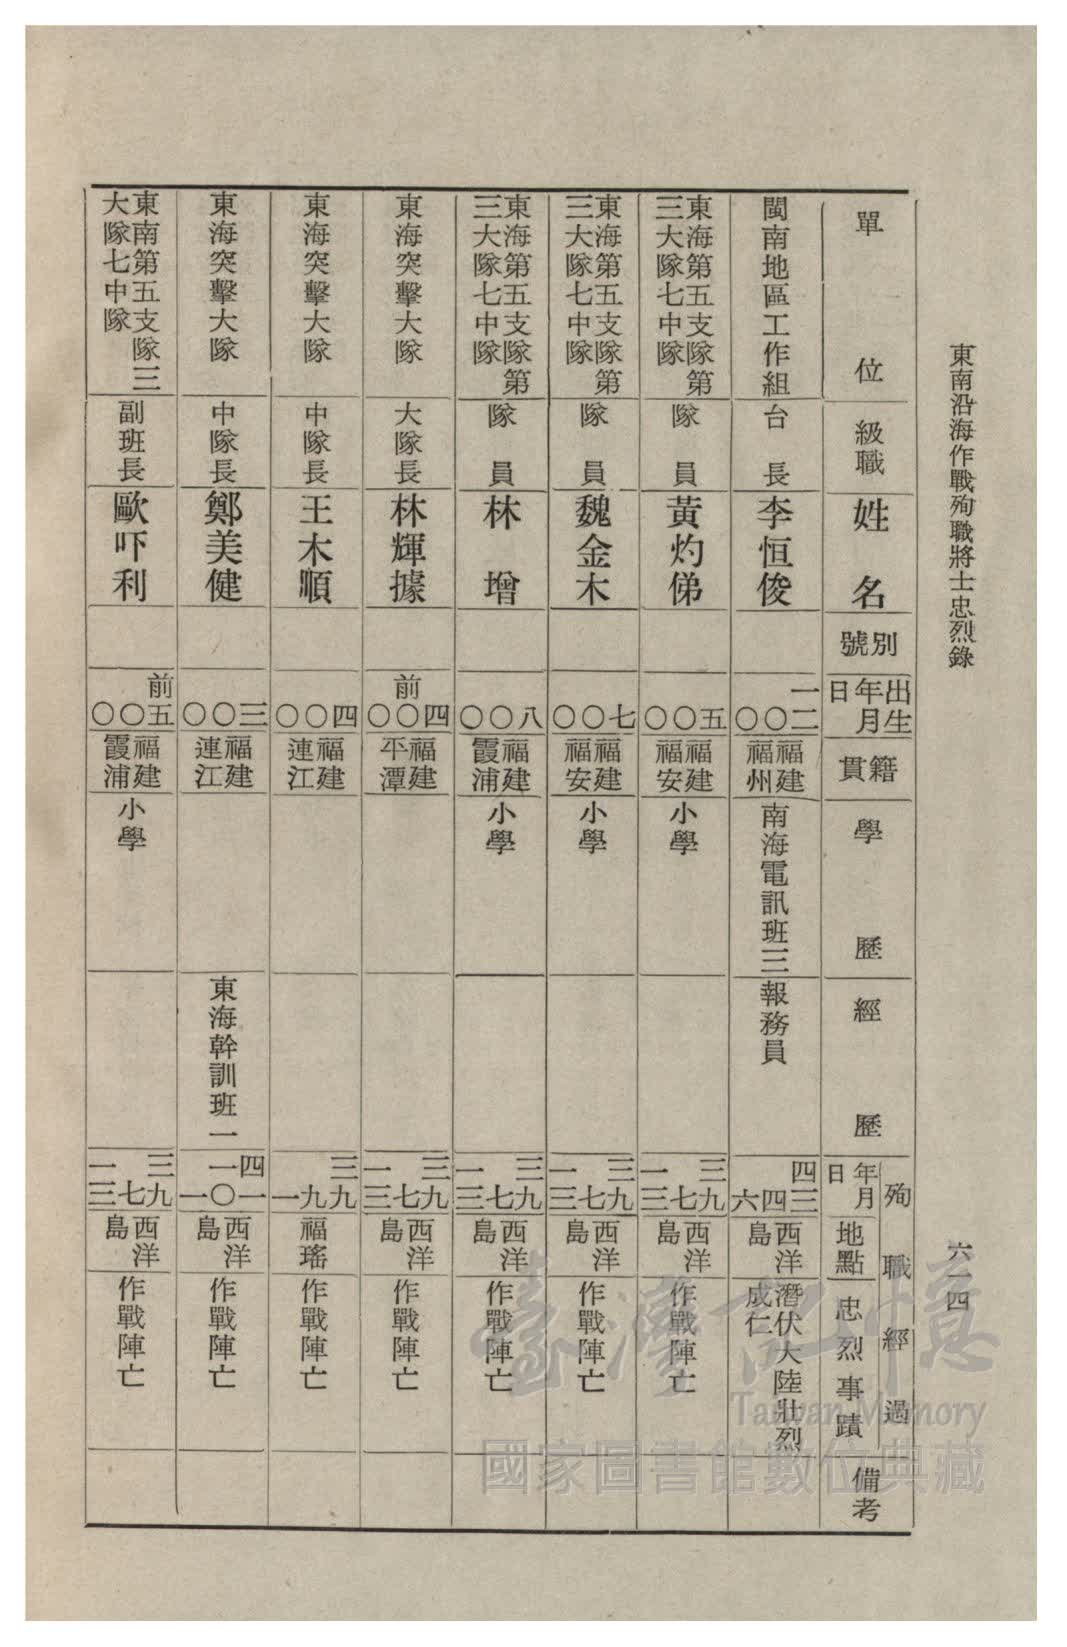 東南沿海作戰殉職將士忠烈錄
六一四
單位
級職
姓名
別號
出生年月日
籍貫
學歷
經歷
殉職經過
年月日
地點
忠烈事蹟
備考
閩南地區工作組
台長
李恒俊
一二〇〇
福建福州
南海電訊班三
報務員
四三四六
西洋島
潛伏大陸壯烈成仁
東海第五支隊第三大隊七中隊
隊員
黃灼俤
五〇〇
福建福安
小學
三九七一三
西洋島
作戰陣亡
東海第五支隊第三大隊七中隊
隊員
魏金木
七〇〇
福建福安
小學
三九七一三
西洋島
作戰陣亡
東海第五支隊第三大隊七中隊
隊員
林增
八〇〇
福建霞浦
小學
三九七一三
西洋島
作戰陣亡
東海突擊大隊
大隊長
林輝據
前四〇〇
福建平潭
三九七一三
西洋島
作戰陣亡
東海突擊大隊
中隊長
王木順
四〇〇
福建連江
三九九一
福瑤
作戰陣亡
東海突擊大隊
中隊長
鄭美健
三〇〇
福建連江
東海幹訓班一
四一〇一一
西洋島
作戰陣亡
東南第五支隊三大隊七中隊
副班長
歐吓利
前五〇〇
福建霞浦
小學
三九七一三
西洋島
作戰陣亡
臺灣記憶
Taiwan Memory
國家圖書館數位典藏